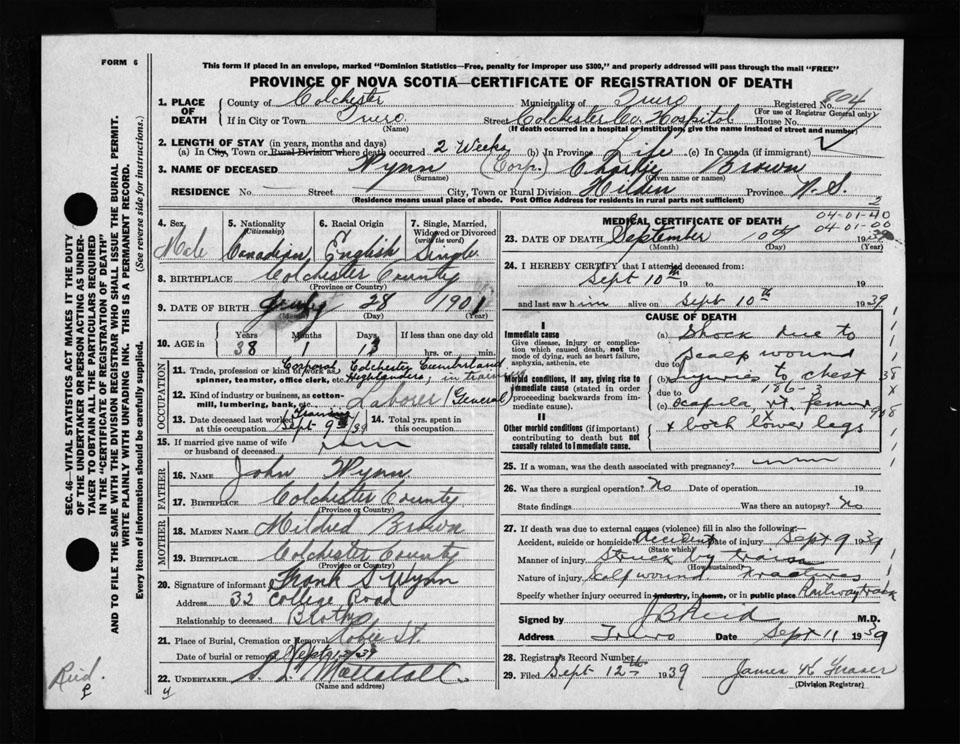 FORM 6
This form if placed in an envelope, marked "Dominion Statistics—Free, penalty for improper use $300," and properly addressed will pass through the mail "FREE"
PROVINCE OF NOVA SCOTIA—CERTIFICATE OF REGISTRATION OF DEATH
1. PLACE OF DEATH County of Colchester Municipality of Truro Registered No. 804
(For use of Registrar General only)
If in City or Town Truro Street Colchester Co. Hospital House No.
(Name) (If death occurred in a hospital or institution, give the name instead of street and number)
2. LENGTH OF STAY (in years, months and days)
(a) In City, Town or Rural Division where death occurred 2 Weeks (b) In Province Life (c) In Canada (if immigrant)
3. NAME OF DECEASED Wynn (Corp.) Charlie Brown
(Surname) (Given name or names)
RESIDENCE No. Street City, Town or Rural Division Hilden Province N.S.
(Residence means usual place of abode. Post Office Address for residents in rural parts not sufficient)
4. Sex Male
5. Nationality (Citizenship) Canadian
6. Racial Origin English
7. Single, Married, Widowed or Divorced (write the word) Single
8. BIRTHPLACE Colchester County
(Province or Country)
9. DATE OF BIRTH July 28 1901
(Month) (Day) (Year)
10. AGE in Years Months Days If less than one day old
38 1 hrs. or min.
OCCUPATION
11. Trade, profession or kind of work as spinner, teamster, office clerk, etc. Corporal Colchester Cumberland Highlanders, in training
12. Kind of industry or business, as cotton-mill, lumbering, bank, etc. Laborer (General)
13. Date deceased last worked at this occupation Training Sept 9th/39
14. Total yrs. spent in this occupation
15. If married give name of wife or husband of deceased
FATHER
16. NAME John Wynn
17. BIRTHPLACE Colchester County
(Province or Country)
MOTHER
18. MAIDEN NAME Mildred Brown
19. BIRTHPLACE Colchester County
(Province or Country)
20. Signature of informant Frank S Wynn
Address 32 College Road
Relationship to deceased Brother
21. Place of Burial, Cremation or Removal Robie St
Date of burial or removal Sept 13/39
22. UNDERTAKER
(Name and address)
MEDICAL CERTIFICATE OF DEATH
2
04-01-40
04-01-00
23. DATE OF DEATH September 10th 1939
(Month) (Day) (Year)
24. I HEREBY CERTIFY that I attended deceased from:
Sept 10th 19 to 19
and last saw him alive on Sept 10th 1939
CAUSE OF DEATH
I
Immediate cause
Give disease, injury or complication which caused death, not the mode of dying, such as heart failure, asphyxia, asthenia, etc
(a) Shock due to scalp wound
due to
Morbid conditions, if any, giving rise to immediate cause (stated in order proceeding backwards from immediate cause).
(b) Injuries to chest
due to 186-3
(c) scapula, rt. femur
II
Other morbid conditions (if important) contributing to death but not causally related to immediate cause.
x both lower legs
25. If a woman, was the death associated with pregnancy?
26. Was there a surgical operation? No Date of operation 19
State findings Was there an autopsy? No
27. If death was due to external causes (violence) fill in also the following:
Accident, suicide or homicide? Accident Date of injury Sept 9 1939
(State which)
Manner of injury Struck by train
(How sustained)
Nature of injury Scalp wound fractures
Specify whether injury occurred in industry, in home, or in public place Railway track
Signed by J B Reid M.D.
Address Truro Date Sept 11 1939
28. Registrar's Record Number
29. Filed Sept 12th 1939 James K Fraser
(Division Registrar)
SEC. 46—VITAL STATISTICS ACT MAKES IT THE DUTY OF THE UNDERTAKER OR PERSON ACTING AS UNDERTAKER TO OBTAIN ALL THE PARTICULARS REQUIRED IN THE "CERTIFICATE OF REGISTRATION OF DEATH" AND TO FILE THE SAME WITH THE DIVISION REGISTRAR WHO SHALL ISSUE THE BURIAL PERMIT.
WRITE PLAINLY WITH UNFADING INK. THIS IS A PERMANENT RECORD.
Every item of information should be carefully supplied. (See reverse side for instructions.)
Reid